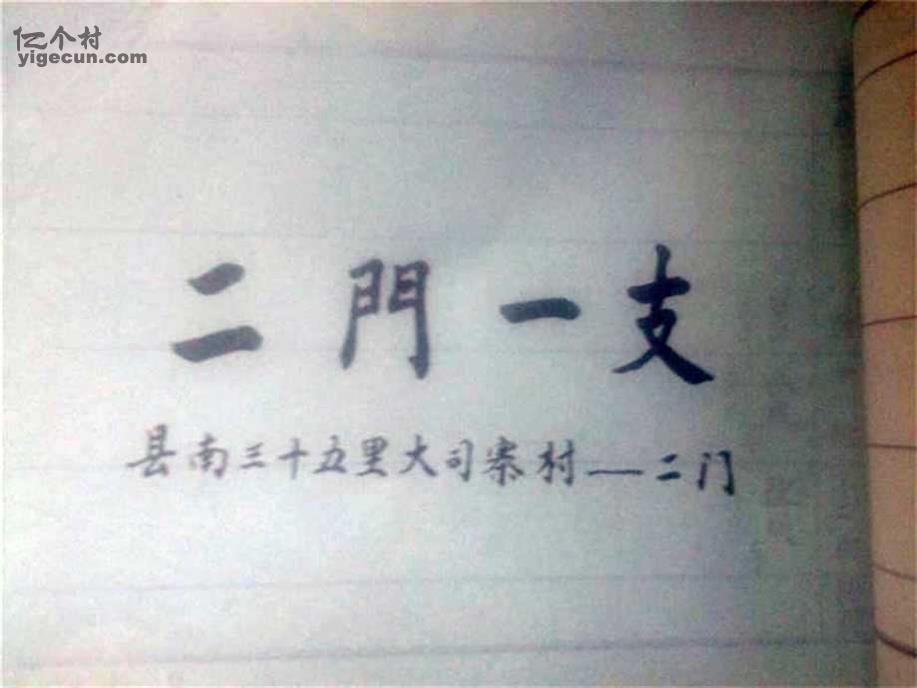 亿个村
yigecun.com
二門一支
县南三十五里大司寨村——二门